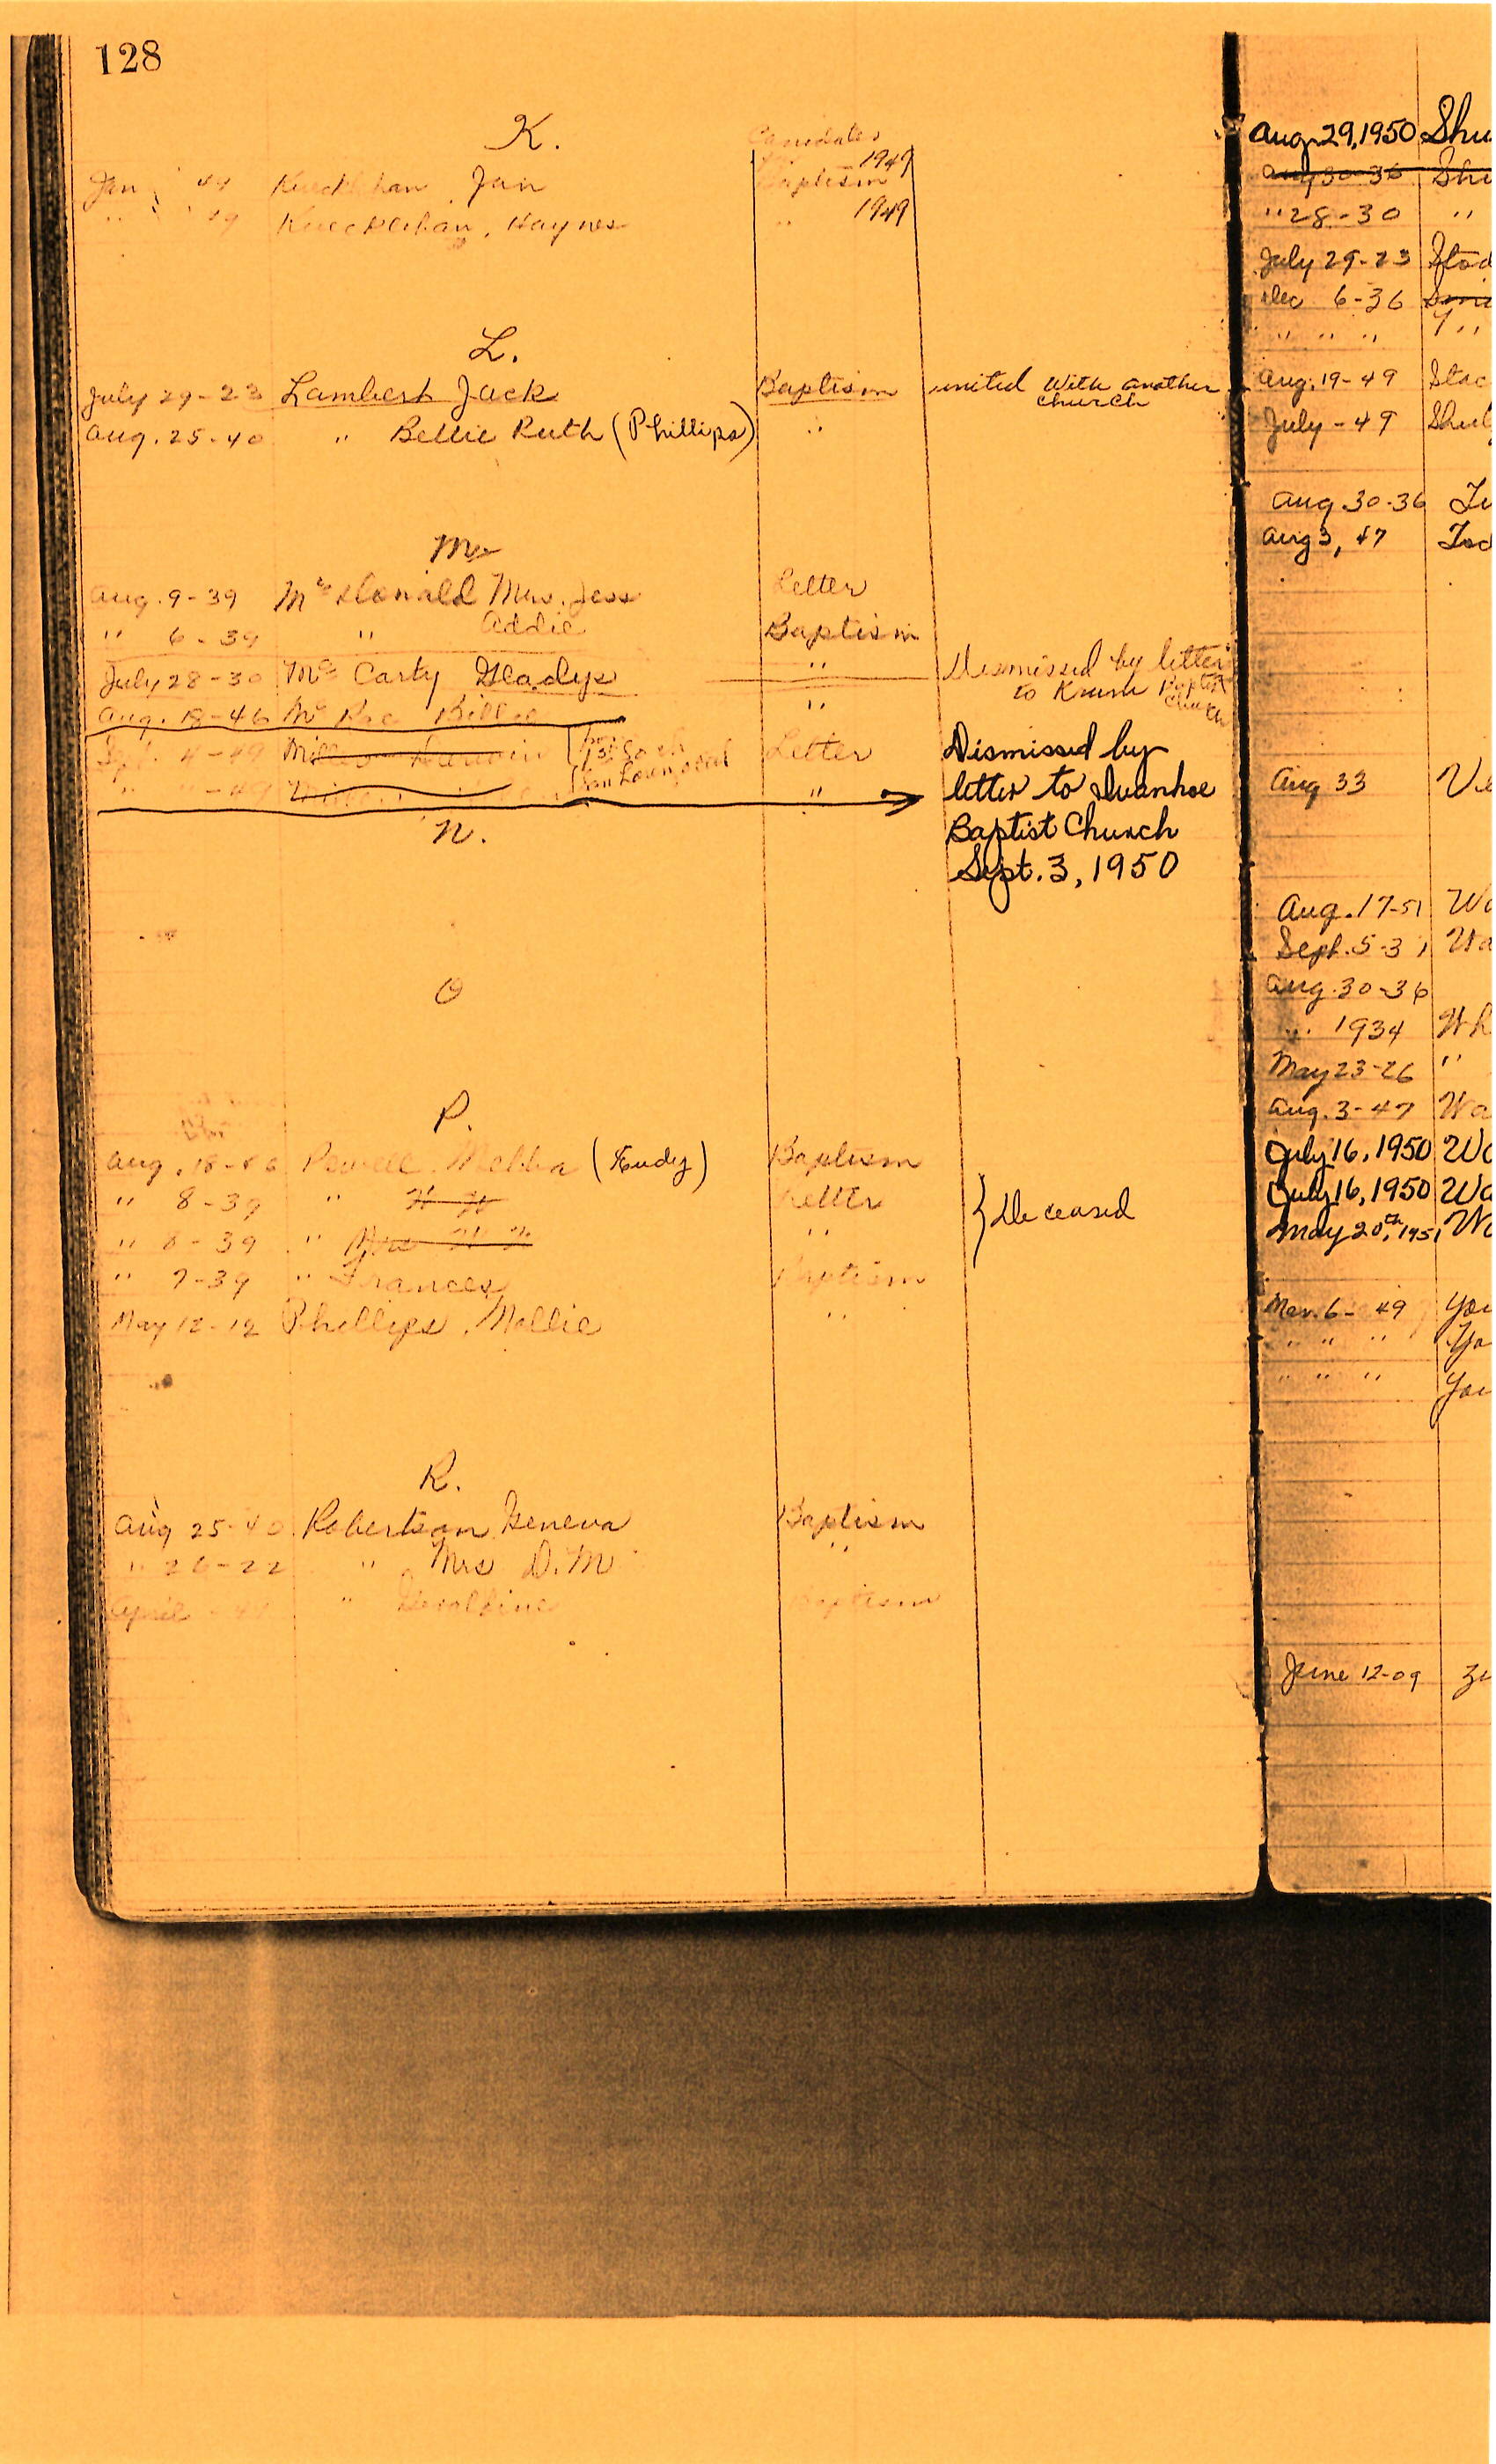 128
K.
Candidates
Jan 49 Kueckelhan Jan Baptism 1949
" 49 Kueckelhan, Haynes " 1949
L.
July 29-23 Lambert Jack Baptism united with another church
Aug. 25-40 " Bettie Ruth (Phillips) "
Mc
Aug. 9-39 Mc Donald Mrs. Jess Letter
" 6-39 " Addie Baptism
July 28-30 Mc Carty Gladys " Dismissed by letter to Krum Baptist Church
Aug. 18-46 Mc Rae Billie "
Sept. 4-49 Letter Dismissed by
" " -49 " letter to Ivanhoe
N. Baptist Church
Sept. 3, 1950
O
P.
Aug. 18-46 Powell Melba (Tudy) Baptism
" 8-39 " H H Letter } Deceased
" 8-39 " Mrs H H "
" 7-39 " Frances Baptism
May 12-12 Phillips, Mollie "
R.
Aug 25-40 Robertson Geneva Baptism
" 26-22 " Mrs D. M "
April -44 " Geraldine Baptism
Aug 29, 1950 Shu
Aug 30-36 Shu
" 28-30 "
July 29-23 Stod
Dec 6-36 Smi
" " " "
Aug. 19-49 Stac
July -49 Shul
Aug 30-36 Tu
Aug 3, 47 Tod
Aug 33 Ve
Aug. 17-51 Wa
Sept. 5-37 Wa
Aug. 30-36
" 1934 Wh
May 23-26 "
Aug. 3-47 Wa
July 16, 1950 Wa
July 16, 1950 Wa
May 20th, 1951 Wa
Mar. 6-49 You
" " " Yo
" " " You
June 12-09 Zu